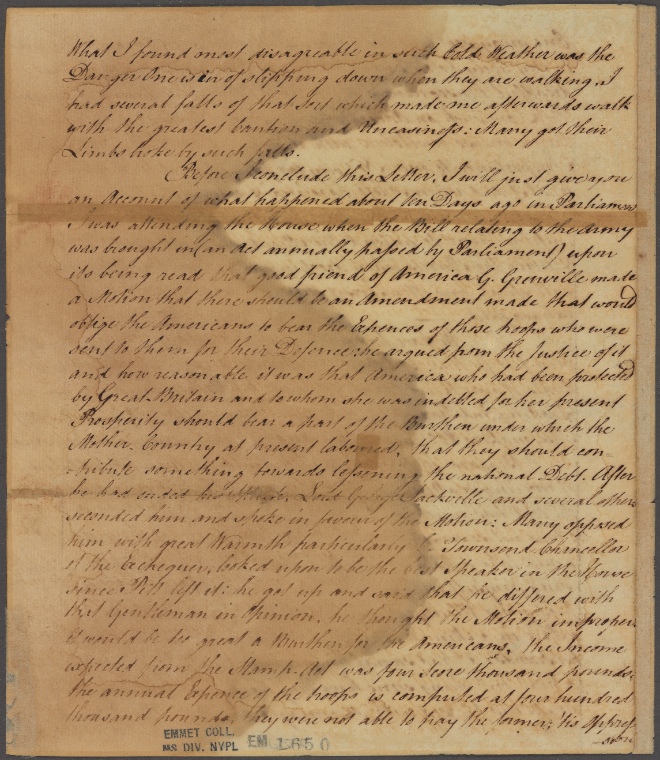 What I found most disagreable in such Cold Weather was the
Danger One is in of slipping down when they are walking. I
had several falls of that sort which made me afterwards walk
with the greatest Caution and Uneasiness: Many got their
Limbs broke by such falls.
Before I conclude this Letter, I will just give you
an Account of what happened about ten Days ago in Parliament
I was attending the House when the Bill relating to the Army
was brought in (an Act annually passed by Parliament) upon
its being read that good friend of America G. Grenville made
a Motion that there should be an Amendment made that would
oblige the Americans to bear the Expences of those troops who were
sent to them for their Defence: he argued from the Justice of it
and how reasonable it was that America who had been protected
by Great Britain and to whom she was indebted for her present
Prosperity should bear a part of the Burthen under which the
Mother Country at present laboured, that they should con-
-tribute something towards lessening the national Debt. After
he had ended his Lord George Sackville and several others
seconded him and spoke in favour of the Motion: Many opposed
him with great Warmth particularly Townsend Chancellor
of the Exchequer, looked upon to be the best Speaker in the House
since Pitt left it: he got up and said that he differed with
that Gentleman in Opinion, he thought the Motion improper
it would be too great a Burthen for the Americans, the Income
expected from the Stamp-Act was four score thousand pounds:
the annual Expence of the troops is computed at four hundred
thousand pounds. They were not able to pay the former; his Oppress
-sion
EMMET COLL.
MS DIV. NYPL
EM 1650